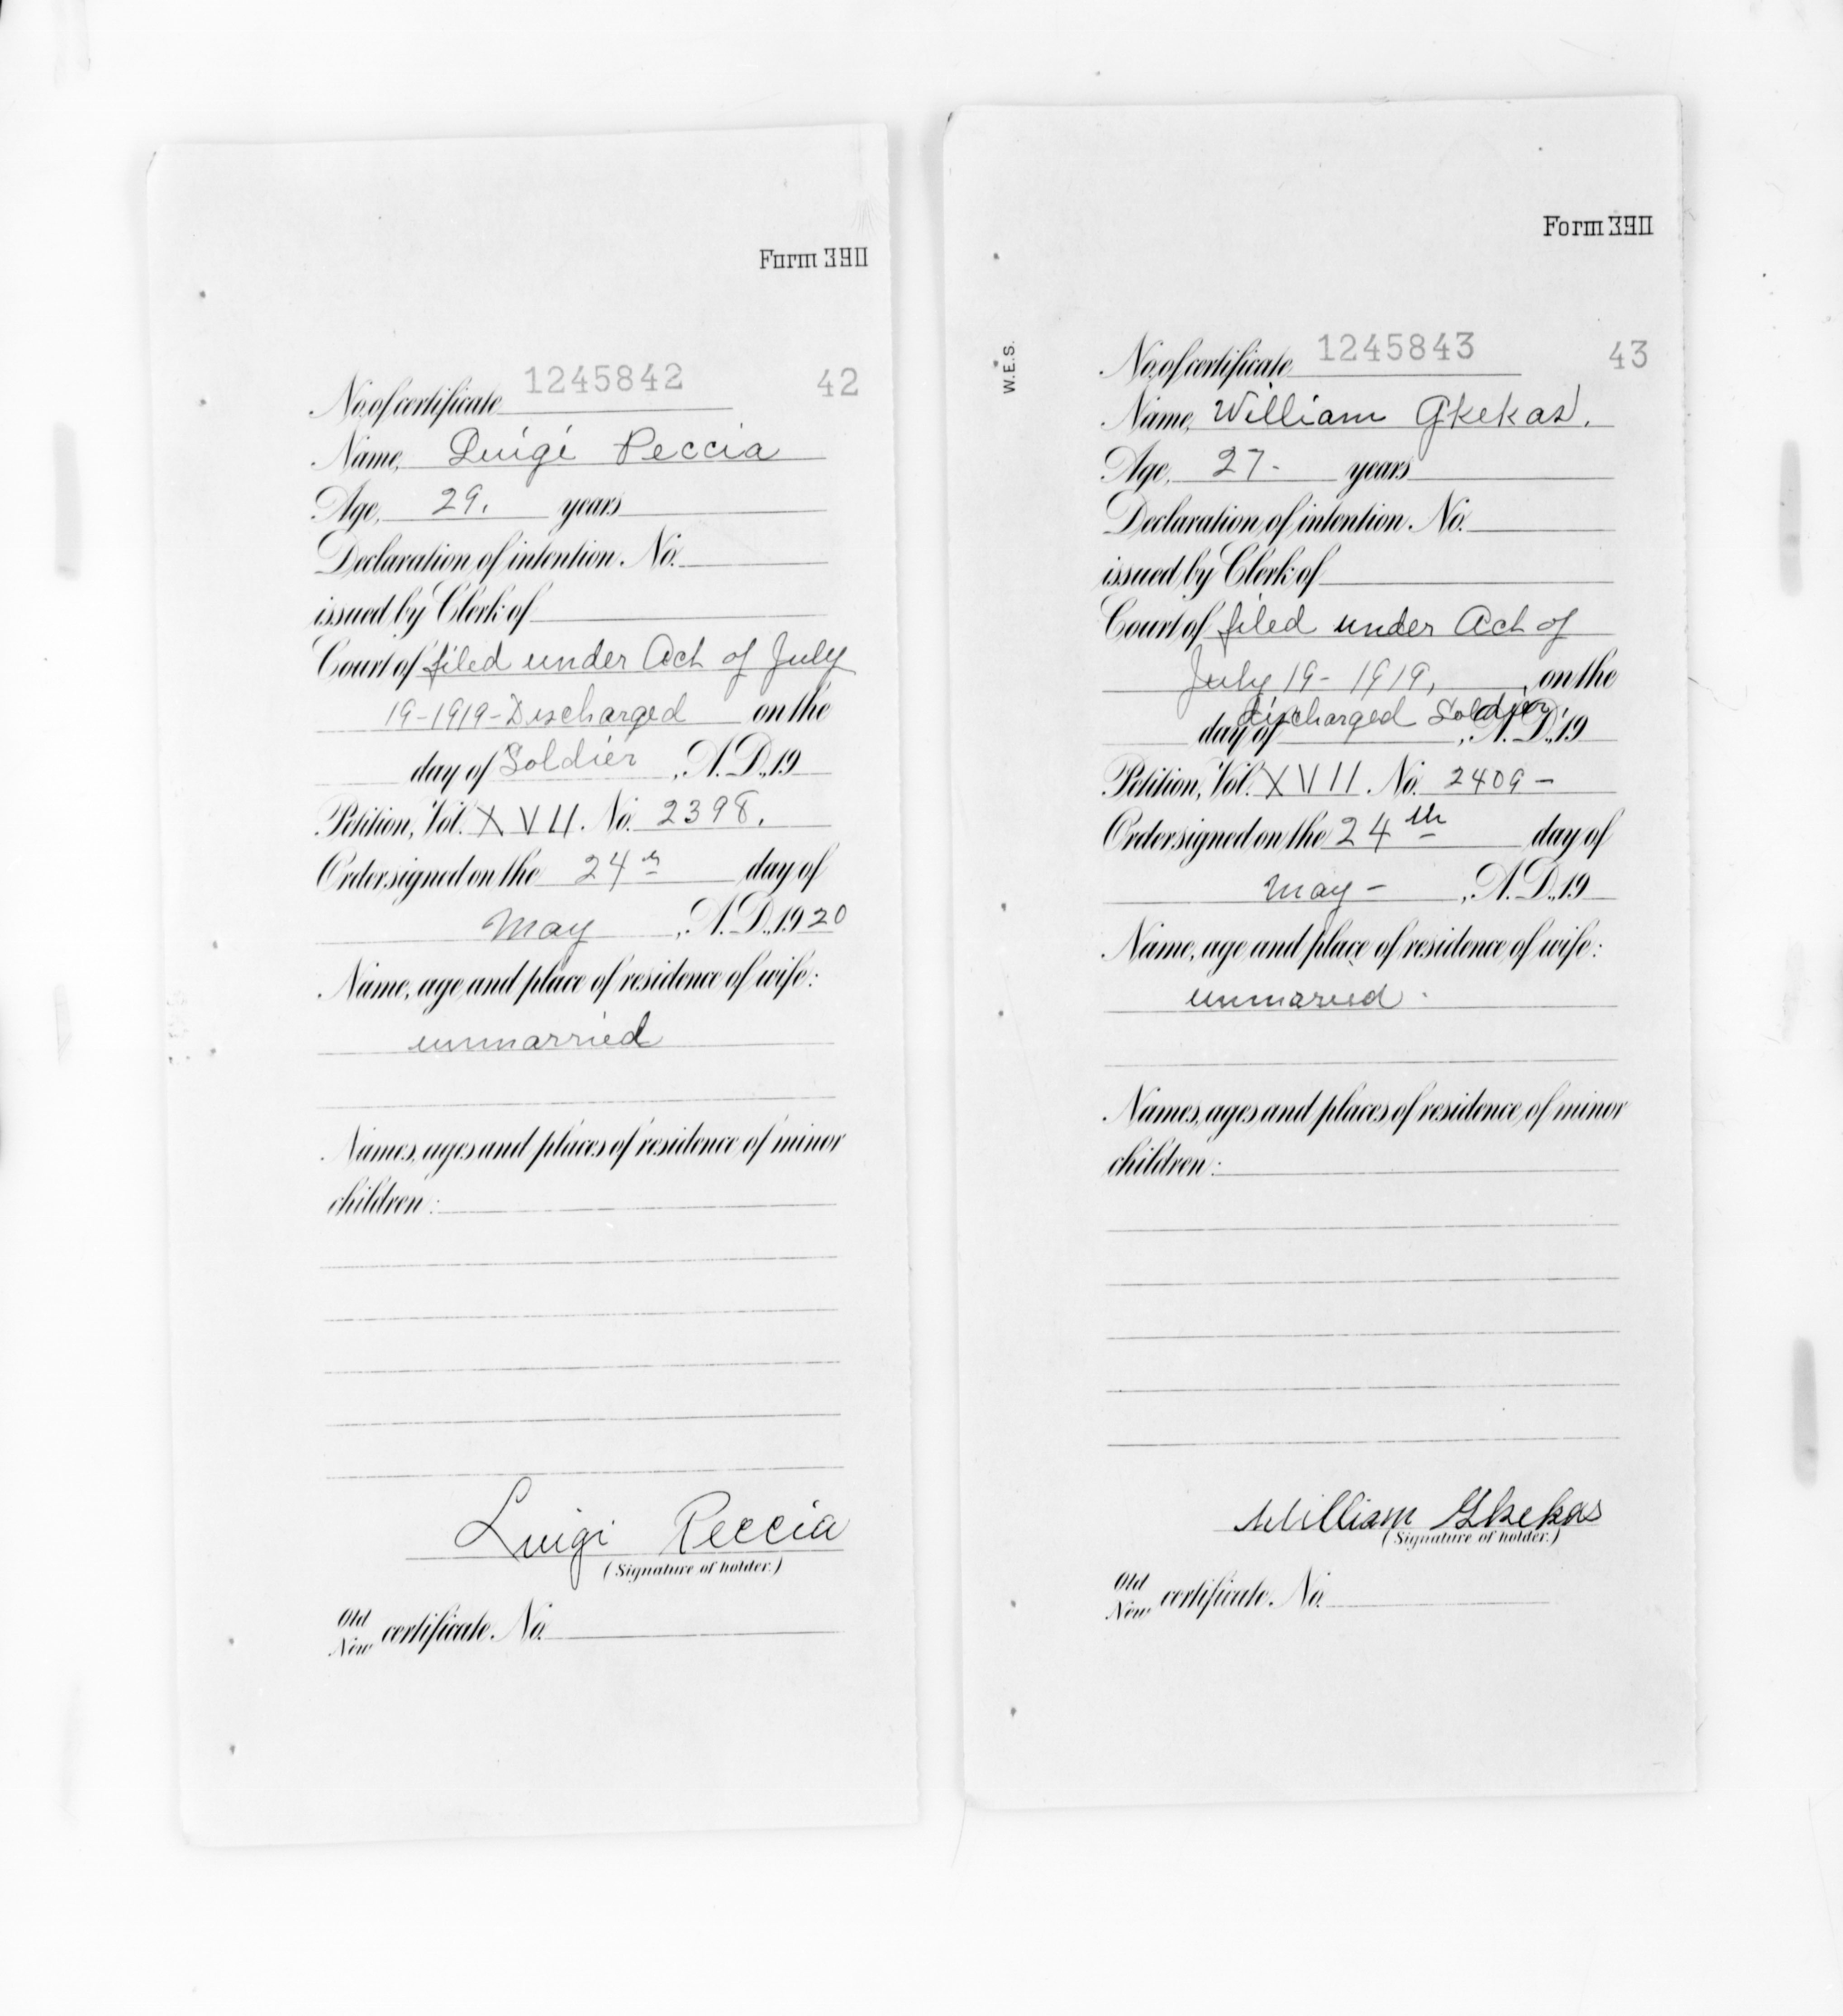 Form 390
No. of certificate 1245842 42
Name, Luigi Peccia
Age, 29. years
Declaration of intention No.
issued by Clerk of
Court of filed under Act of July
19-1919-Discharged on the
day of Soldier, A.D., 19
Petition, Vol. XVII. No. 2398.
Order signed on the 24th day of
May, A.D., 1920
Name, age and place of residence of wife:
unmarried
Names, ages and places of residence of minor
children:
Luigi Peccia
(Signature of holder.)
Old
New certificate No.
Form 390
W.E.S.
No. of certificate 1245843 43
Name, William Gkekas.
Age, 27- years
Declaration of intention No.
issued by Clerk of
Court of filed under Act of
July 19-1919, , on the
discharged Soldier,
day of , A.D., 19
Petition, Vol. XVII. No. 2409-
Order signed on the 24th day of
May-, A.D., 19
Name, age and place of residence of wife:
unmarried.
Names, ages and places of residence of minor
children:
William Gkekas
(Signature of holder.)
Old
New certificate No.